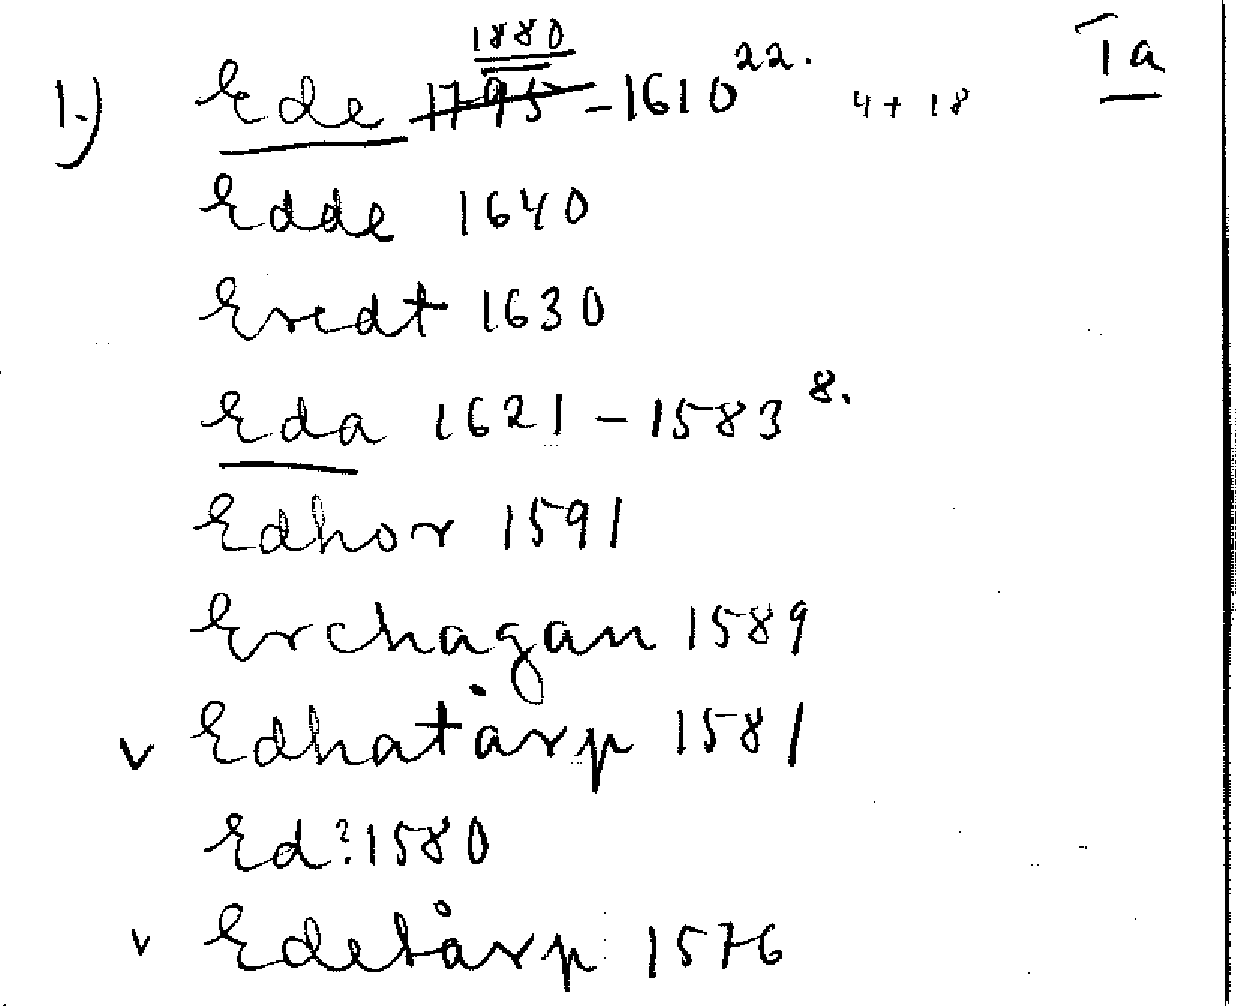 1880
1.) Ede 1795 - 1610 22. 4 + 18 Ia
Edde 1640
Eredt 1630
Eda 1621 - 1583 8.
Edhor 1591
Erchagan 1589
v Edhatårp 1581
Ed? 1580
v Edetårp 1576